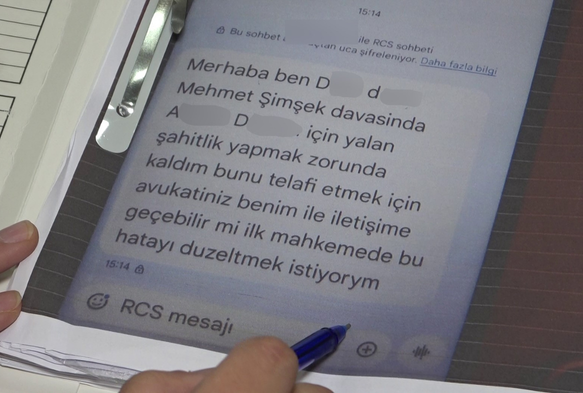 15:14
Bu sohbet ile RCS sohbeti
uca şifreleniyor. Daha fazla bilgi
Merhaba ben D d
Mehmet Şimşek davasinda
A D . için yalan
şahitlik yapmak zorunda
kaldım bunu telafi etmek için
avukatiniz benim ile iletişime
geçebilir mi ilk mahkemede bu
hatayı duzeltmek istiyorym
15:14
RCS mesajı